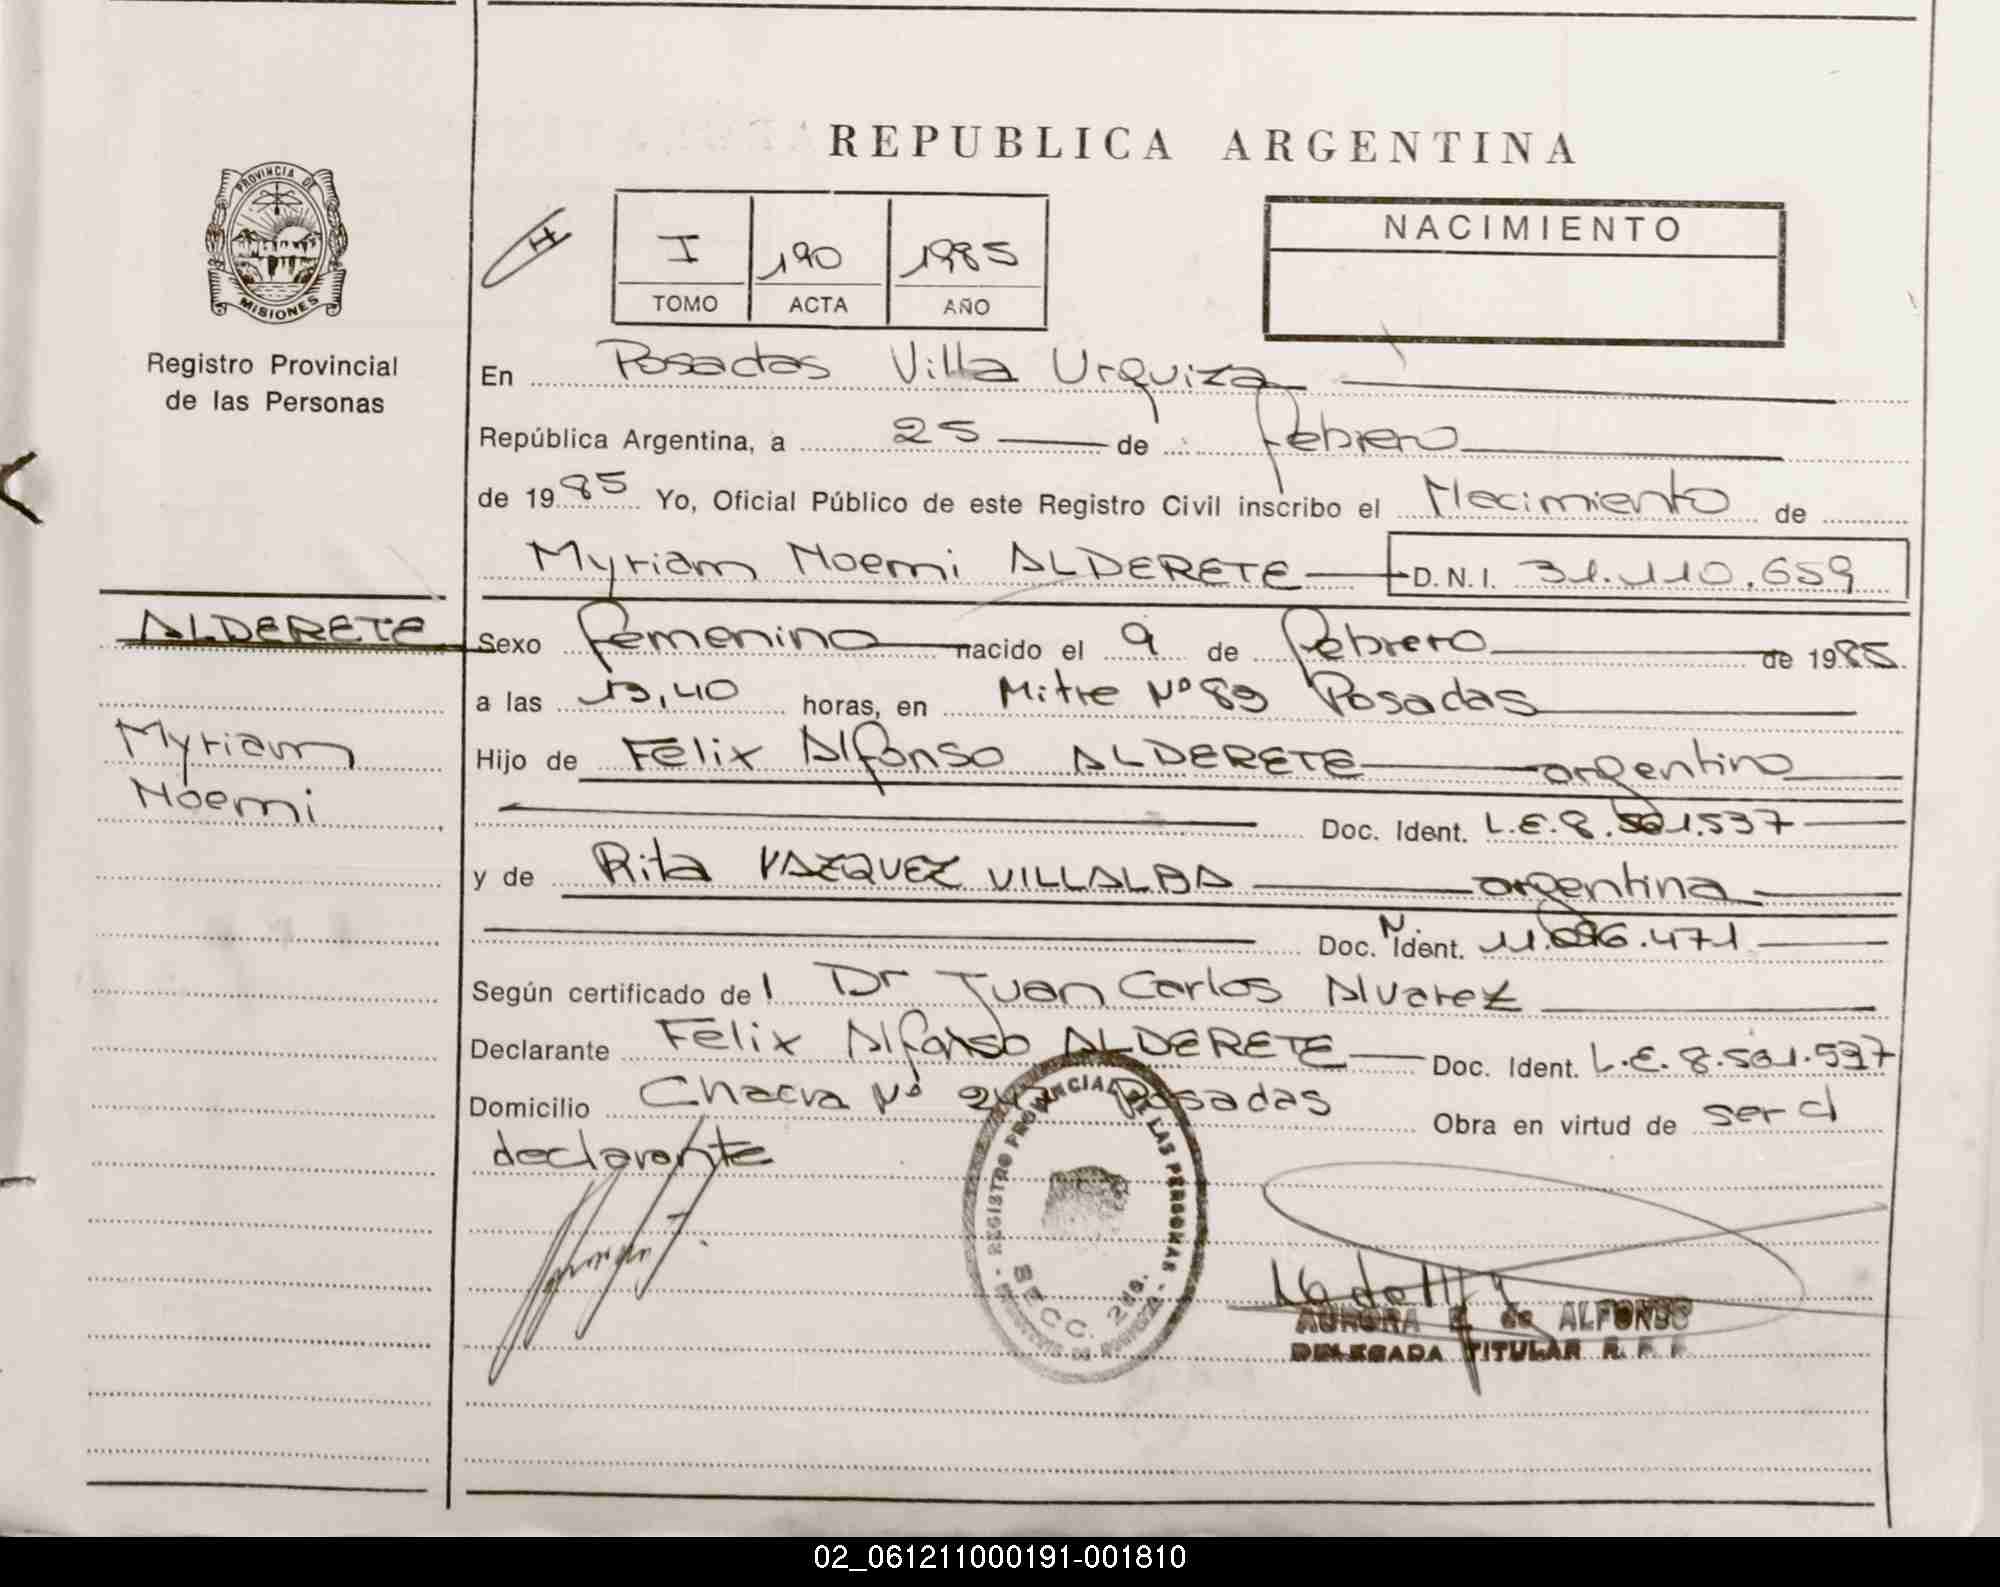 REPUBLICA ARGENTINA
PROVINCIA DE
MISIONES
Registro Provincial
de las Personas
H
I 190 1985
TOMO ACTA AÑO
NACIMIENTO
En Posadas Villa Urquiza
República Argentina, a 25 de febrero
de 1985 Yo, Oficial Público de este Registro Civil inscribo el Nacimiento de
Myriam Noemi ALDERETE D.N.I. 31.110.659
ALDERETE
Myriam
Noemi
Sexo femenino nacido el 9 de febrero de 1985.
a las 13,40 horas, en Mitre Nº 89 Posadas
Hijo de Felix Alfonso ALDERETE argentino
Doc. Ident. L.E. 8.501.537
y de Rita VAZQUEZ VILLALBA argentina
Doc. N. Ident. 11.696.471
Según certificado del Dr Juan Carlos Alvarez
Declarante Felix Alfonso ALDERETE Doc. Ident. L.E. 8.501.537
Domicilio Chacra Nº Posadas Obra en virtud de ser el
declarante
REGISTRO PROVINCIAL DE LAS PERSONAS
SECC. 2da.
AURORA E. de ALFONSO
DELEGADA TITULAR R. P. P.
02_061211000191-001810